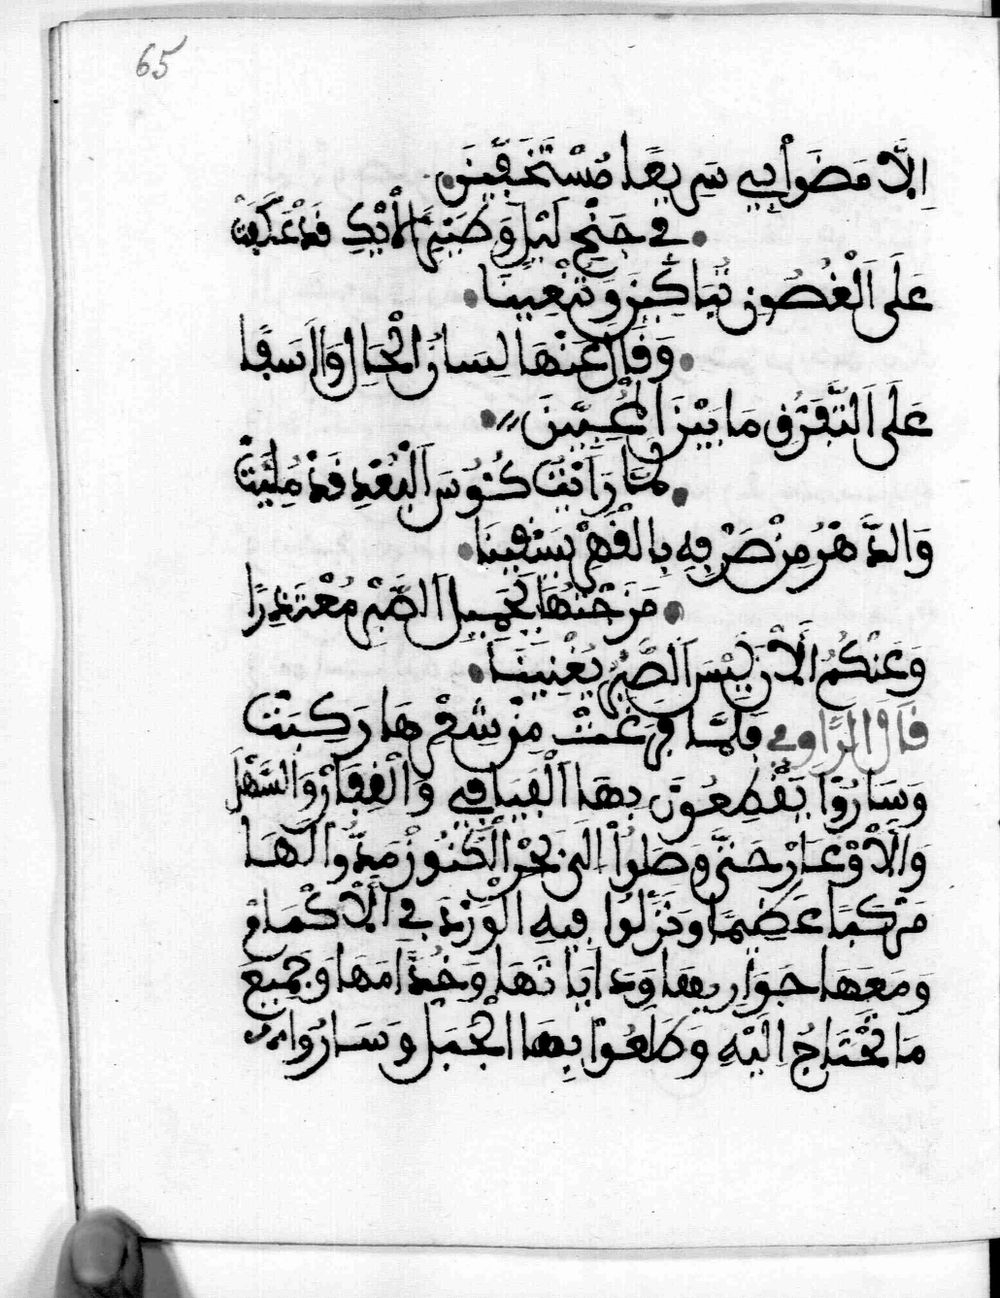 65
اِلَّا مَضَوْا بِي سَرِيعًا مُسْتَخَفِّينَ
في جَنْحِ لَيْلٍ وَطَيْرُ الْأَيْكِ قَدْ عَكَفَتْ
عَلَى الْغُصُونِ تُبَاكِينَ وَتُنْعِينَا
وَقَالَ عَنْهَا لِسَانُ الْحَالِ وَا اَسَفًا
عَلَى التَّفَرُّقِ مَا بَيْنَ الْمُحِبِّينَ
لَمَّا رَاَيْتُ كُئُوسَ الْبُعْدِ قَدْ مُلِيَتْ
وَالدَّهْرُ مِنْ صَرْفِهِ بِالْقَهْرِ يَسْقِينَا
مَزَجْتُهَا بِجَمِيلِ الصَّبْرِ مُعْتَذِرًا
وَعَنْكُمُ الْاَنَ لَيْسَ الصَّبْرُ يُغْنِينَا
قَالَ الرَّاوِي فَلَمَّا فَرَغَتْ مِنْ شِعْرِهَا رَكِبَتْ
وَسَارُوا يَقْطَعُونَ بِهَا الْفَيَافِي وَالْقِفَارَ وَالسَّهْلَ
وَالْاَوْعَارْ حَتَّى وَصَلُوا اِلَى بَحْرِ الْكُنُوزْ مَدُّوا لَهَا
مَرْكَبًا عَضِيمًا وَنَزَّلُوا فِيهِ الْوَرْدَ في الْاَكْمَامْ
وَمَعَهَا جَوَارِيهَا وَدَايَاتَهَا وَخُدَّامَهَا وَجَمِيعَ
مَا تَحْتَاجُ اِلَيْهِ وَطَلَعُوا بِهَا الْجَبَلَ وَسَارُوا